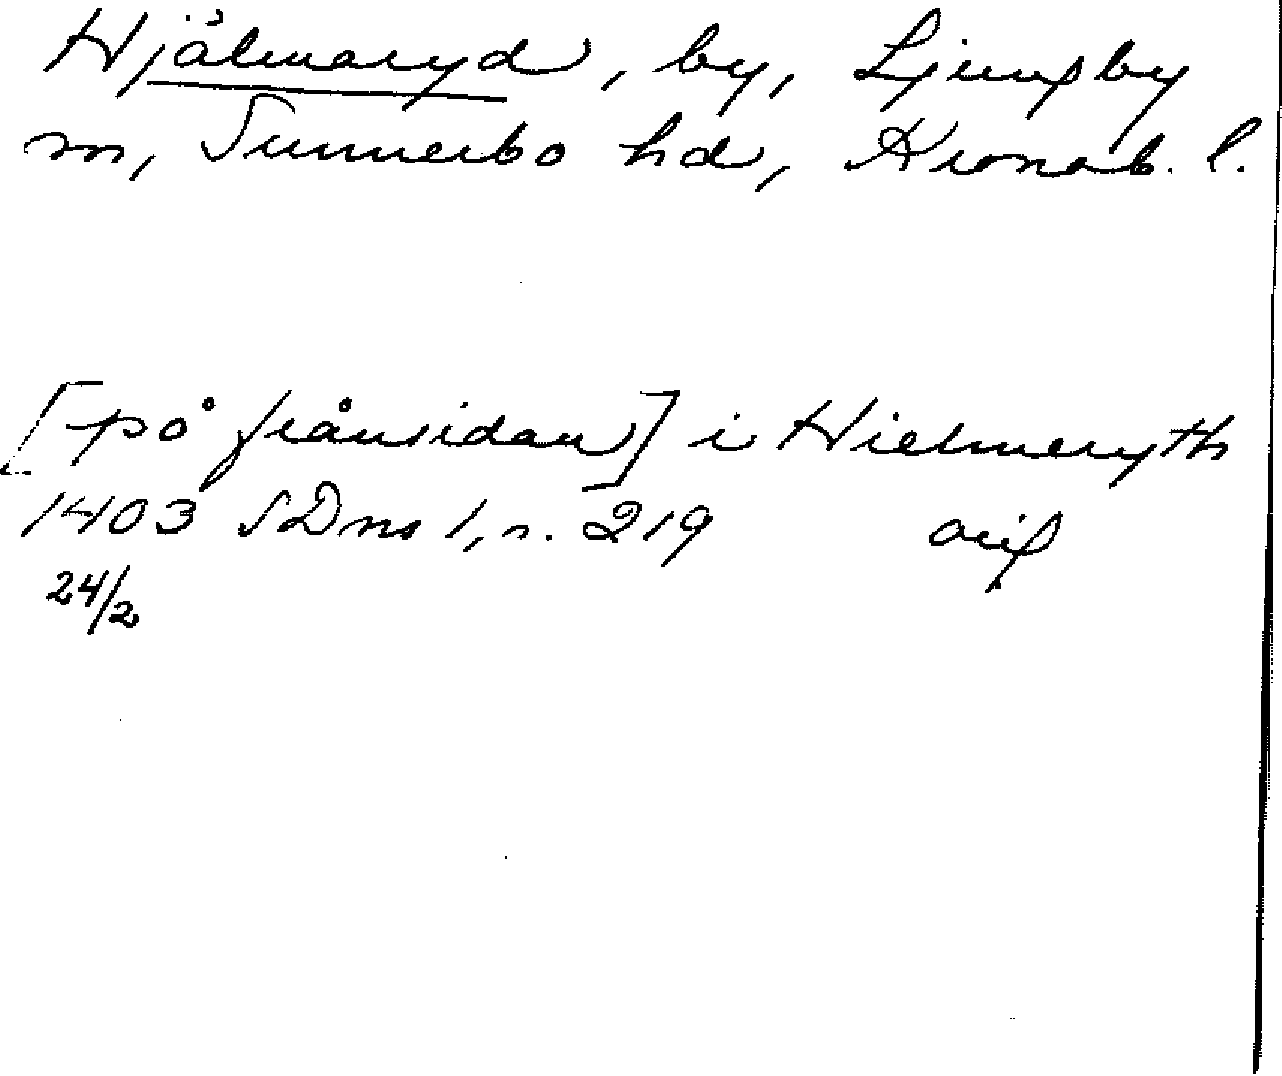 Hjälmaryd, by, Ljungby
sn, Sunnerbo hd, Kronob. l.
[på frånsidan] i Hielmeryth
1403 SDns 1, s. 219 orig
24/2